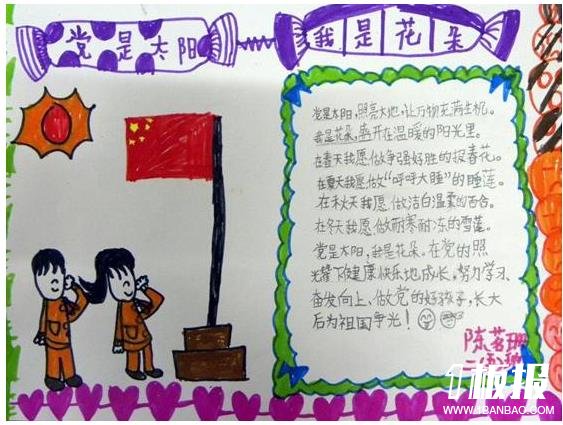 党是太阳
我是花朵
党是太阳，照亮大地，让万物充满生机。
我是花朵，盛开在温暖的阳光里。
在春天我愿做争强好胜的报春花。
在夏天我愿做“呼呼大睡”的睡莲。
在秋天我愿做洁白温柔的百合。
在冬天我愿做耐寒耐冻的雪莲。
党是太阳，我是花朵。在党的照
光耀下健康快乐地成长，努力学习、
奋发向上，做党的好孩子，长大
后为祖国争光！
陈茗珊
板报
WWW.1BANBAO.COM